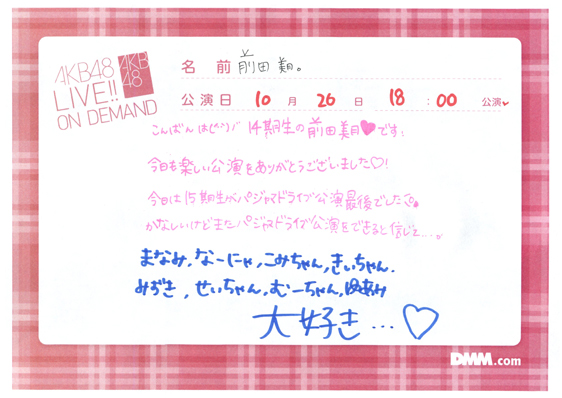 AKB48
LIVE!!
ON DEMAND
AKB
48
名 前 前田 美月。
公演日 10 月 26 日 18 : 00 公演
こんばんは(^^)/ 14期生の前田美月♥です!
今日も楽しい公演をありがとうございました♡!
今日は15期生がパジャマドライブ公演最後でした
かなしいけどまたパジャマドライブ公演をできると信じて…。
まなみ,なーにゃ,こみちゃん,きぃちゃん.
みずき,せいちゃん,むーちゃん,ゆあみ
大好き…♡
DMM.com